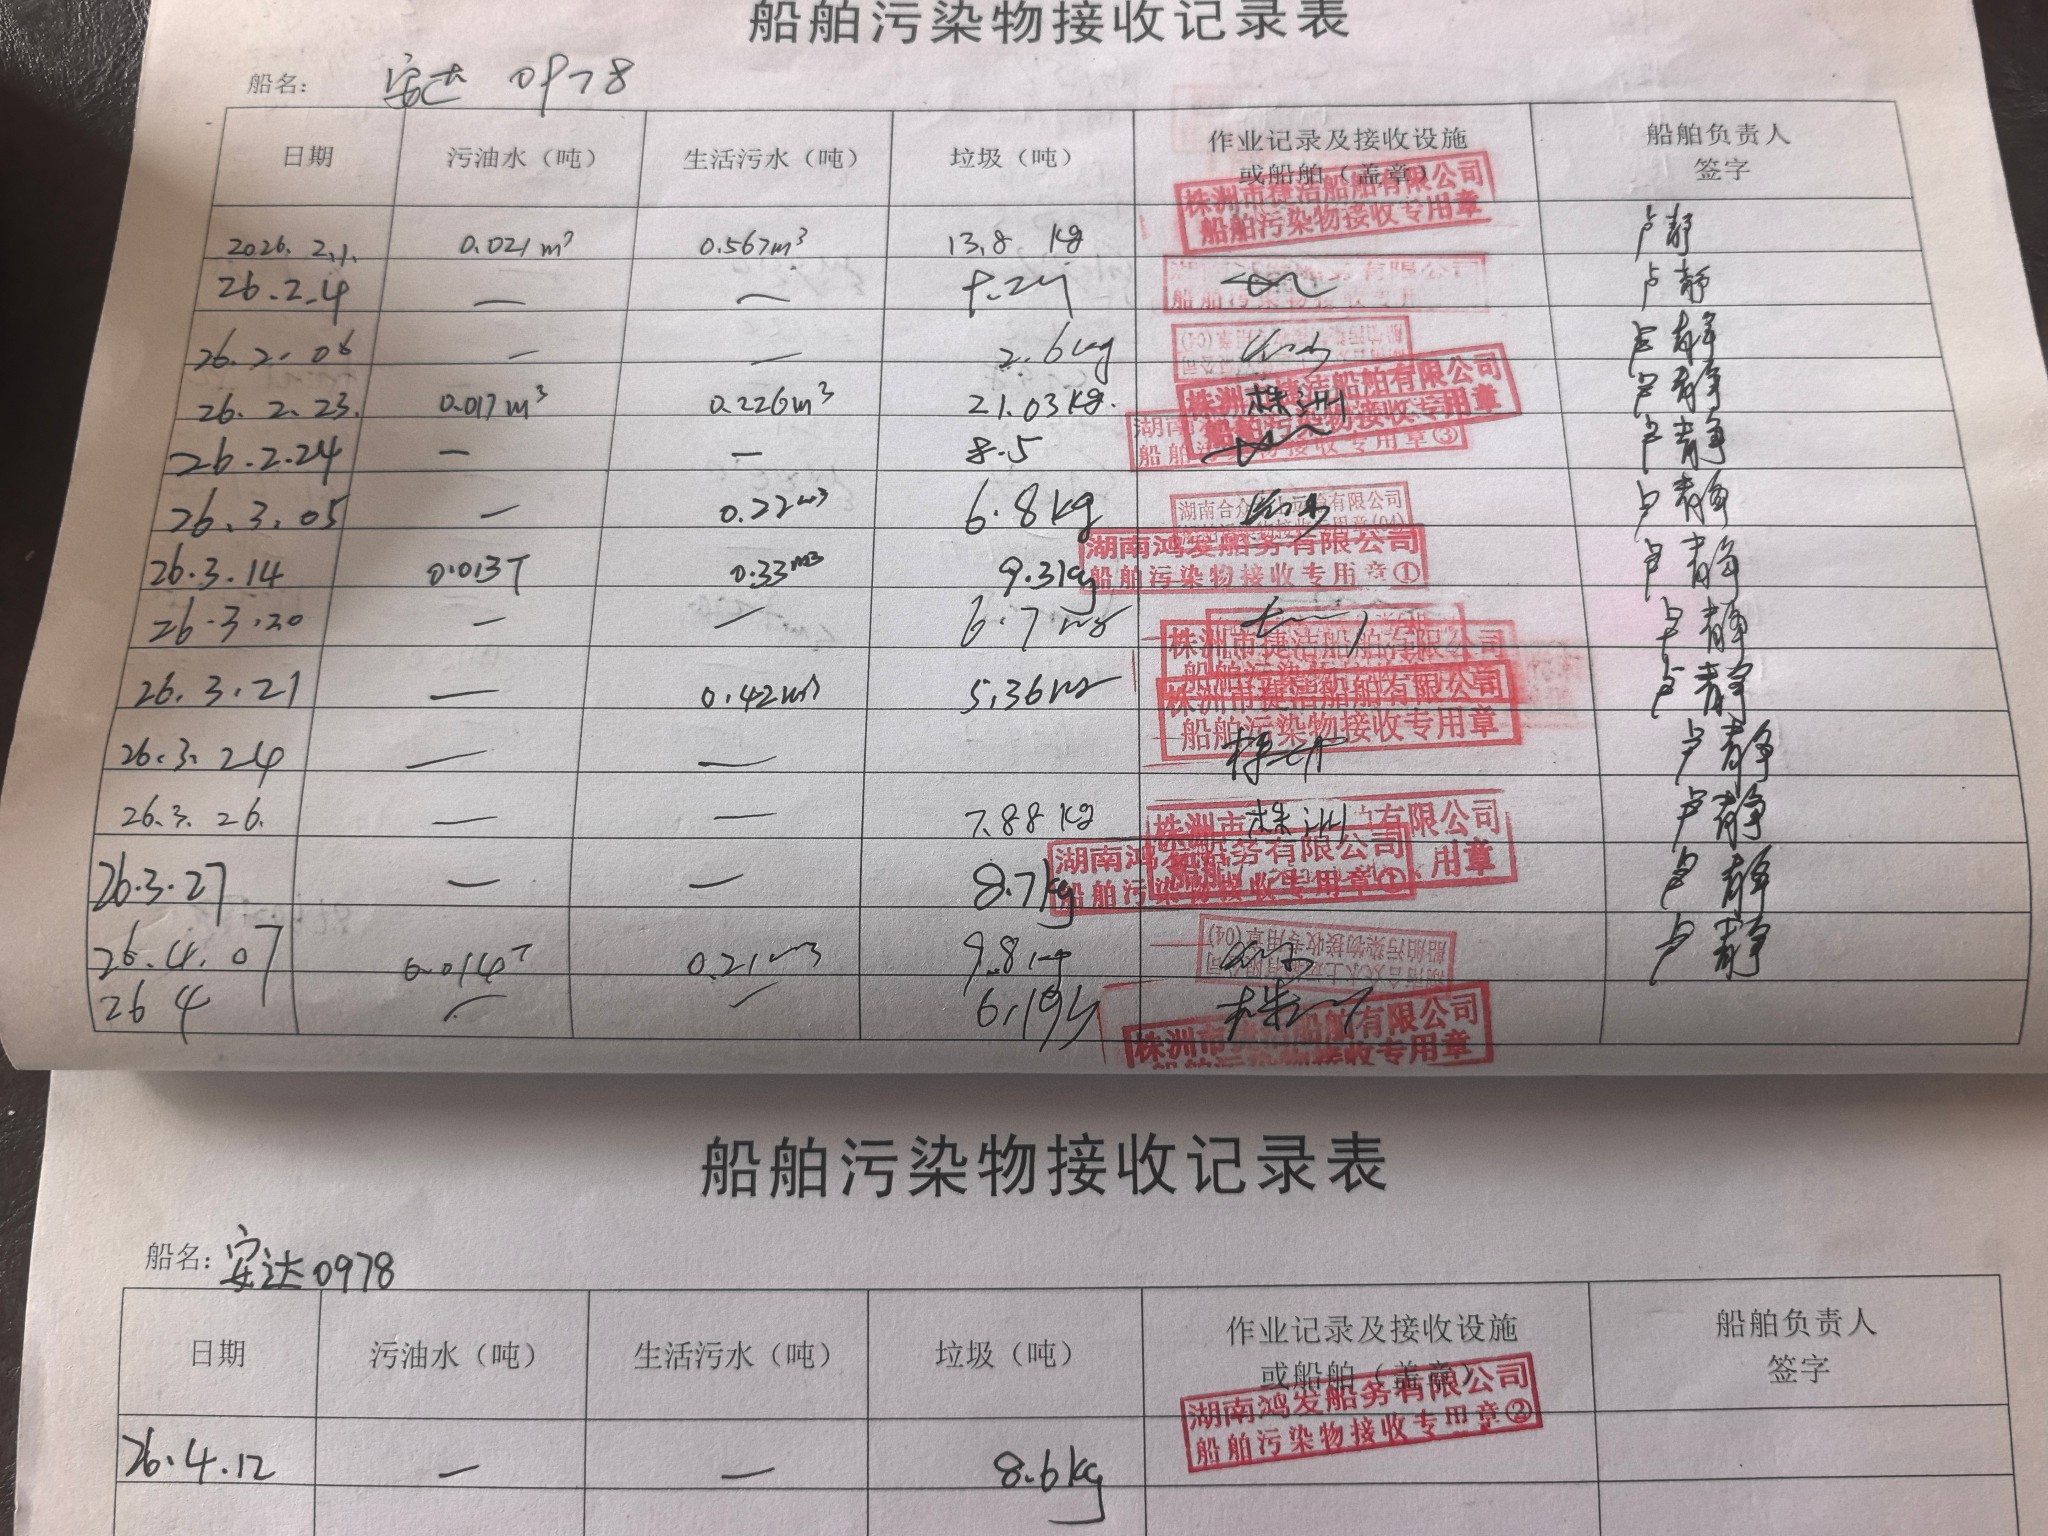 船舶污染物接收记录表
船名： 安达 0978
日期 污油水（吨） 生活污水（吨） 垃圾（吨） 作业记录及接收设施或船舶（盖章） 船舶负责人签字
株洲市捷洁船舶有限公司
船舶污染物接收专用章
2026. 2.1. 0.021m³ 0.567m³ 13.8 kg 卢静
26.2.4 — — 卢静
26.2.06 — — 2.6kg 卢静
26.2.23. 0.017m³ 0.226m³ 21.03kg. 株洲 卢静
株洲市捷洁船舶有限公司
船舶污染物接收专用章
26.2.24 — — 8.5 卢静
船舶污染物接收专用章③
26.3.05 — 0.22m³ 6.8kg 卢静
26.3.14 0.013T 0.33m³ 9.3kg 卢静
湖南鸿发船务有限公司
船舶污染物接收专用章①
26.3.20 — — 6.7kg 卢静
株洲市捷洁船舶有限公司
26.3.21 — 0.42m³ 5.36kg 卢静
株洲市捷洁船舶有限公司
船舶污染物接收专用章
26.3.24 — — 株洲 卢静
26.3.26. — — 7.88kg 株洲 卢静
26.3.27 — — 8.7kg 卢静
湖南鸿发船务有限公司
船舶污染物接收专用章①
26.4.07 0.014T 0.21m³ 9.8kg 卢静
26 4 — — 株洲
株洲市捷洁船舶有限公司
船舶污染物接收专用章
船舶污染物接收记录表
船名：安达0978
日期 污油水（吨） 生活污水（吨） 垃圾（吨） 作业记录及接收设施或船舶（盖章） 船舶负责人签字
湖南鸿发船务有限公司
船舶污染物接收专用章②
26.4.12 — — 8.6kg